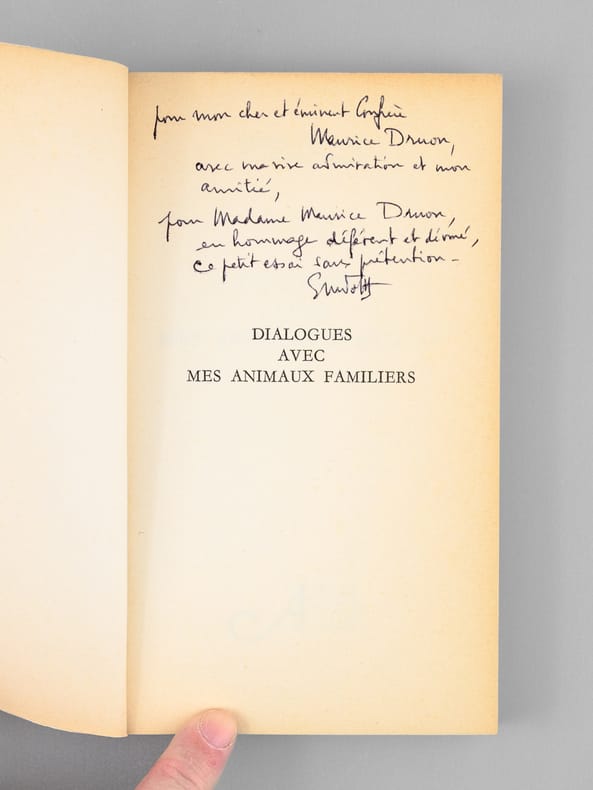 pour mon cher et éminent Confrère
Maurice Druon,
avec ma vive admiration et mon
amitié,
pour Madame Maurice Druon,
en hommage déférent et dévoué,
ce petit essai sans prétention -
DIALOGUES
AVEC
MES ANIMAUX FAMILIERS